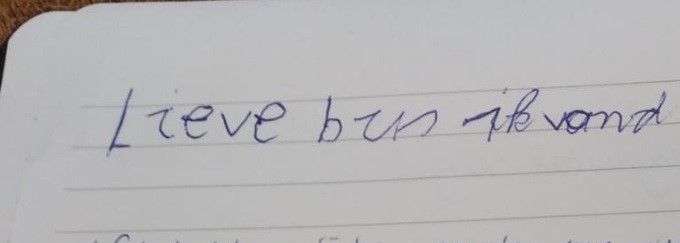 Lieve bus ik vond